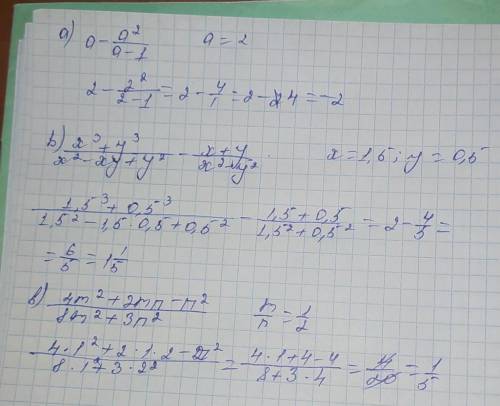 а) a - a²/(a-1)   a = 2
2 - 2²/(2-1) = 2 - 4/1 = 2 - 4 = -2
b) (x³+y³)/(x²-xy+y²) - (x+y)/(x²+y²)   x = 1,5; y = 0,5
(1,5³+0,5³)/(1,5²-1,5·0,5+0,5²) - (1,5+0,5)/(1,5²+0,5²) = 2 - 4/5 =
= 6/5 = 1 1/5
в) (4m²+2mn-n²)/(8m²+3n²)   m/n = 1/2
(4·1²+2·1·2-2²)/(8·1²+3·2²) = (4·1+4-4)/(8+3·4) = 4/20 = 1/5